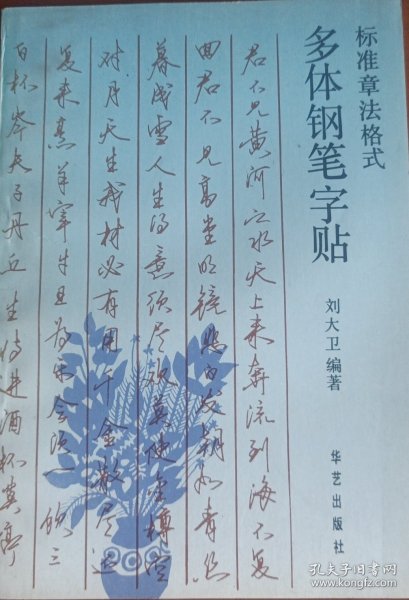 标准章法格式
多体钢笔字贴
刘大卫编著
华艺出版社
君不见黄河之水天上来奔流到海不复
回君不见高堂明镜悲白发朝如青丝
暮成雪人生得意须尽欢莫使金樽空
对月天生我材必有用千金散尽还
复来烹羊宰牛且为乐会须一饮三
百杯岑夫子丹丘生将进酒杯莫停
孔夫子旧书网
www.kongfz.com